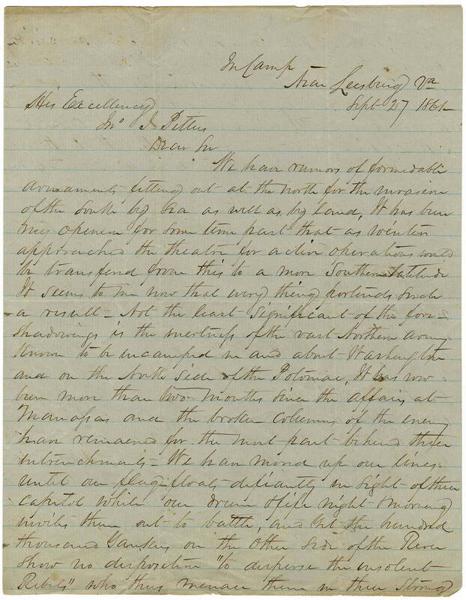 In Camp
Near Leesburg Va
Sept 27 1861
His Excellency
Jno J Pettus
Dear Sir
We have rumors of formidable
armaments fitting out at the north for the invasion
of the South by Sea as well as by land, It has been
my opinion for some time past that as winter
approached the theatre for active operations would
be transferred from this to a more Southern latitude
It seems to me now that every thing portends such
a result - Not the least significant of the fore
shadowings is the inertness of the vast Northern army
known to be encamped in and about Washington
and on the North side of the Potomac, It has now
been more than two months since the affair at
Manassas and the broken columns of the enemy
have remained for the most part behind their
intrenchments - We have moved up our lines
until our flag floats defiantly in sight of their
capitol while our drum & fife night & morning
invites them out to battle, and yet the hundred
thousand Yankees on the other side of the River
show no disposition "to disperse the insolent
Rebels" who thus menace them in their strong